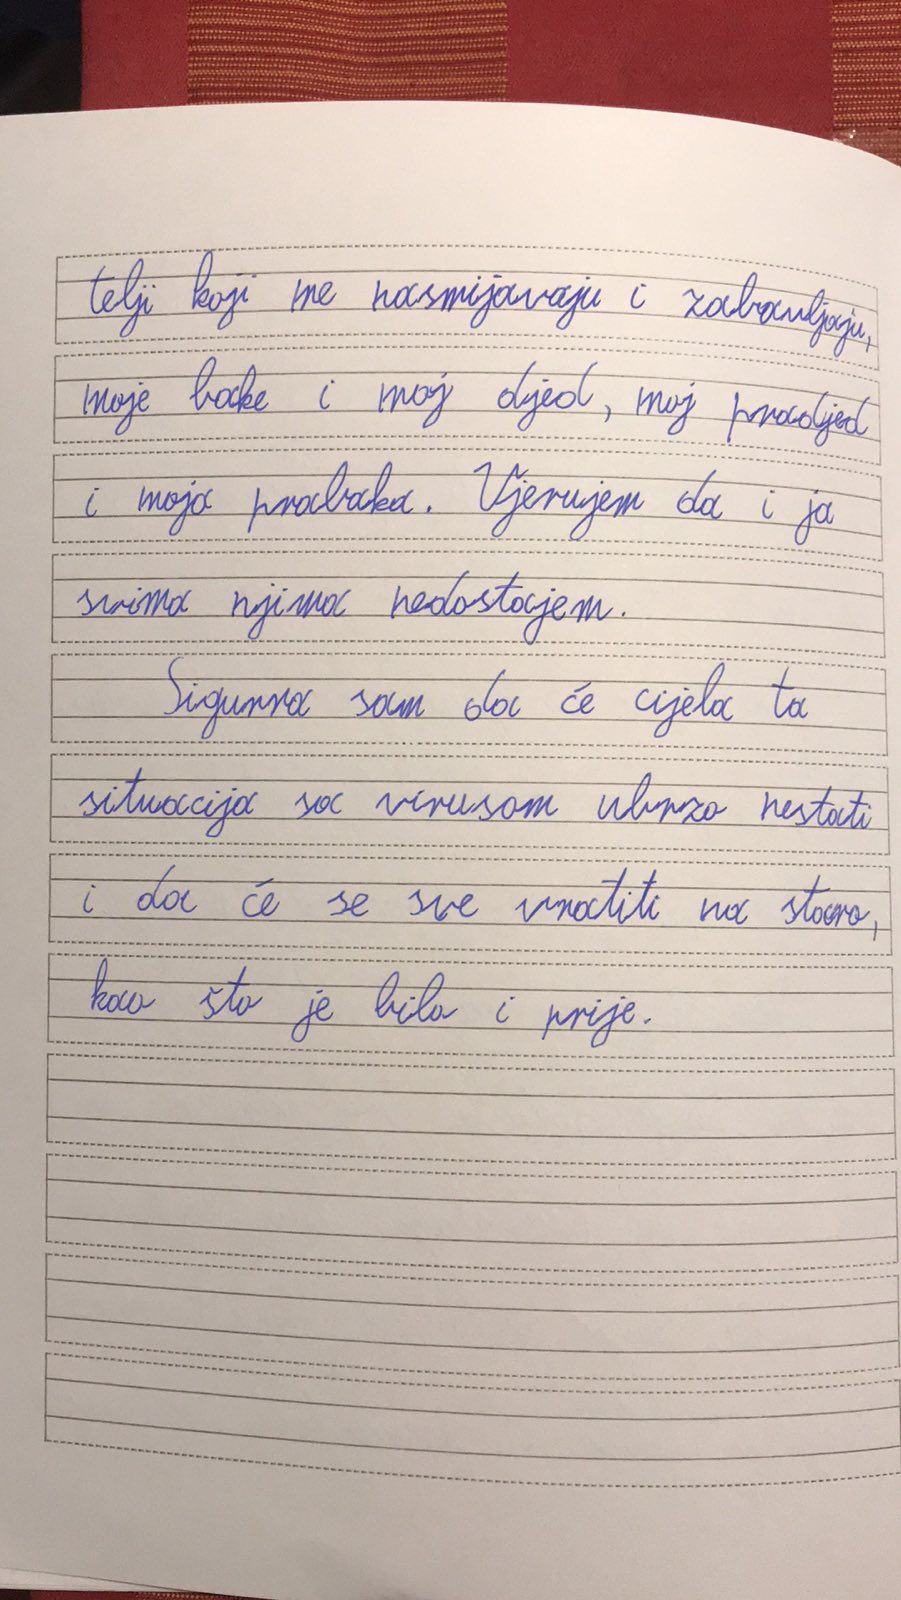 telji koji me nasmijavaju i zabavljaju,
moje bake i moj djed, moj pradjed
i moja prabaka. Vjerujem da i ja
svima njima nedostajem.
Sigurna sam da će cijela ta
situacija sa virusom ubrzo nestati
i da će se sve vratiti na staro,
kao što je bilo i prije.